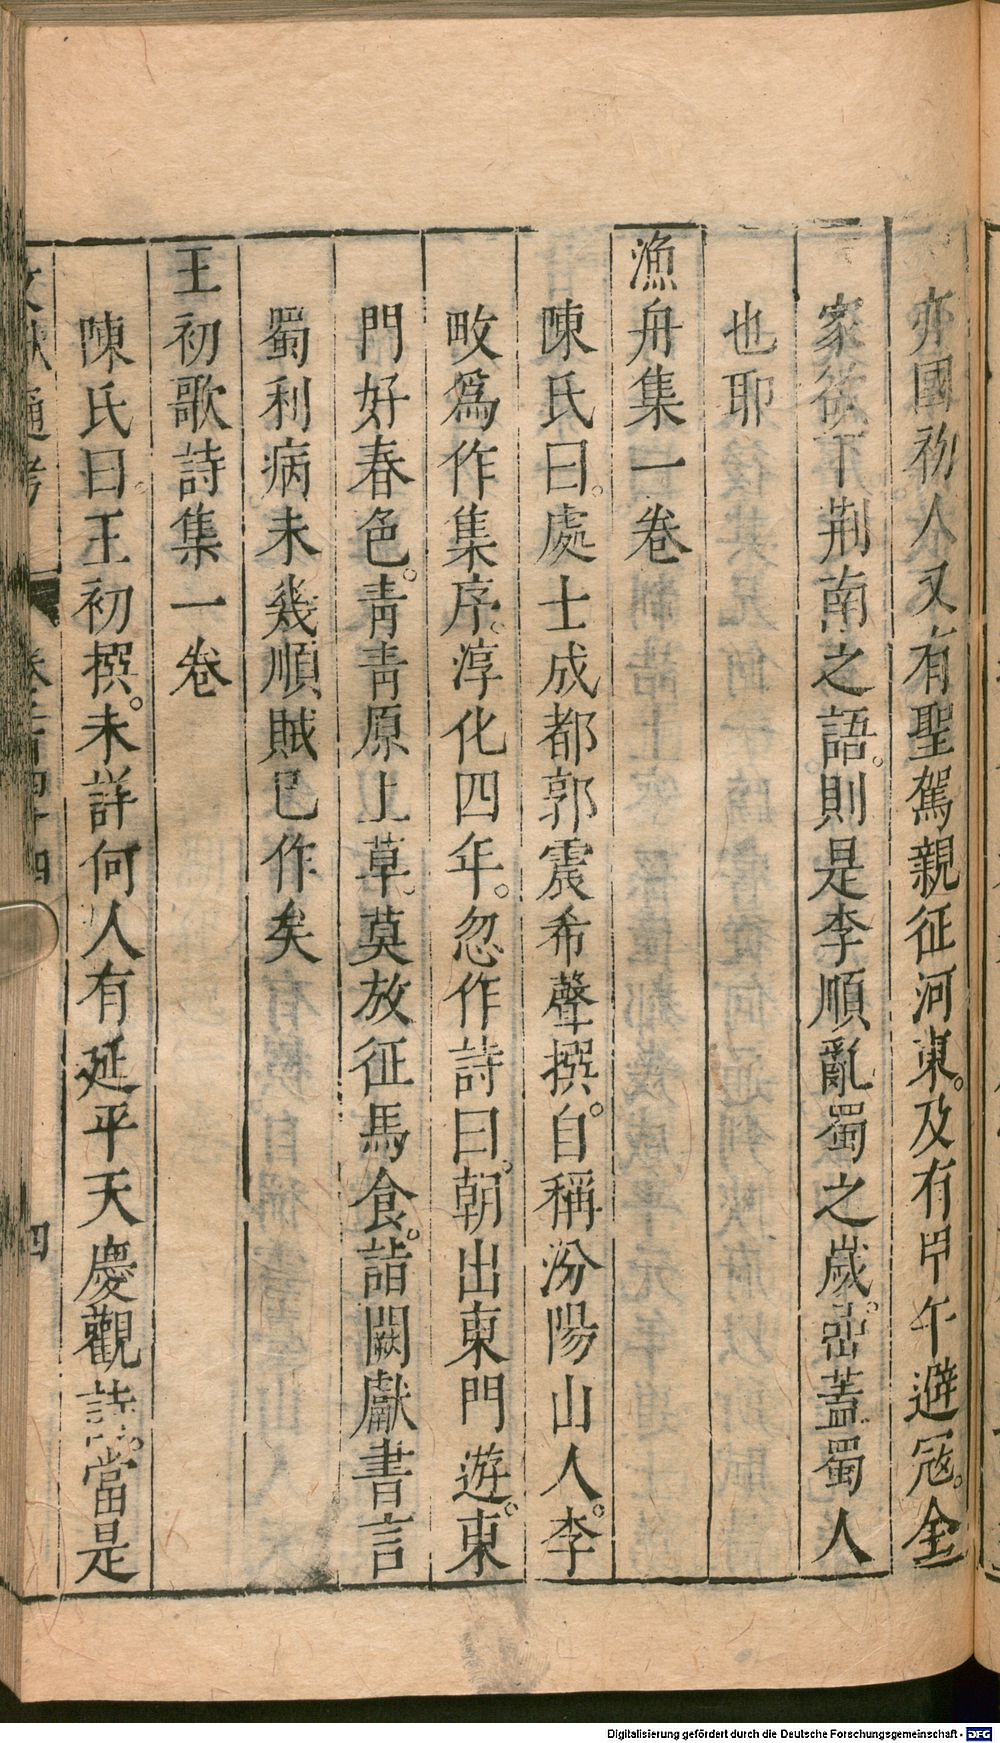 亦國初人又有聖駕親征河東。及有甲午避冦。全
家欲下荆南之語。則是李順亂蜀之歲。岊蓋蜀人
也耶
漁舟集一卷
陳氏曰。處士成都郭震希聲撰。自稱汾陽山人。李
畋爲作集序。淳化四年。忽作詩曰。朝出東門遊。東
門好春色。青青原上草。莫放征馬食。詣闕獻書言
蜀利病未幾順賊已作矣
王初歌詩集一卷
陳氏曰。王初撰。未詳何人有延平天慶觀詩。當是
文獻通考 卷二百四十四 四
Digitalisierung gefördert durch die Deutsche Forschungsgemeinschaft - DFG